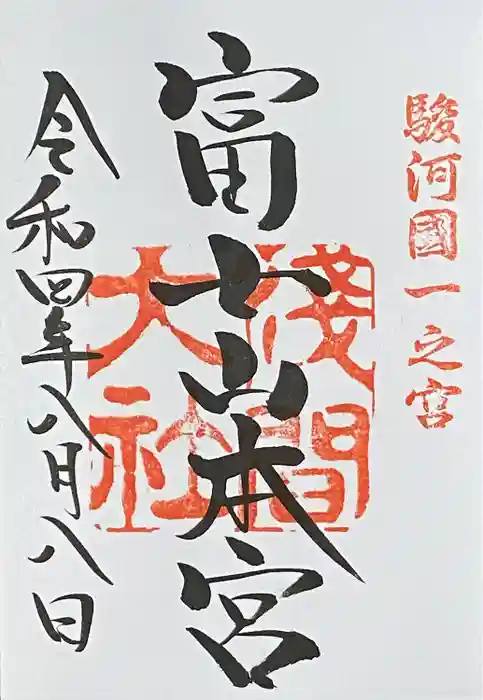 駿河國一之宮
富士山本宮
淺間大社
令和四年八月八日